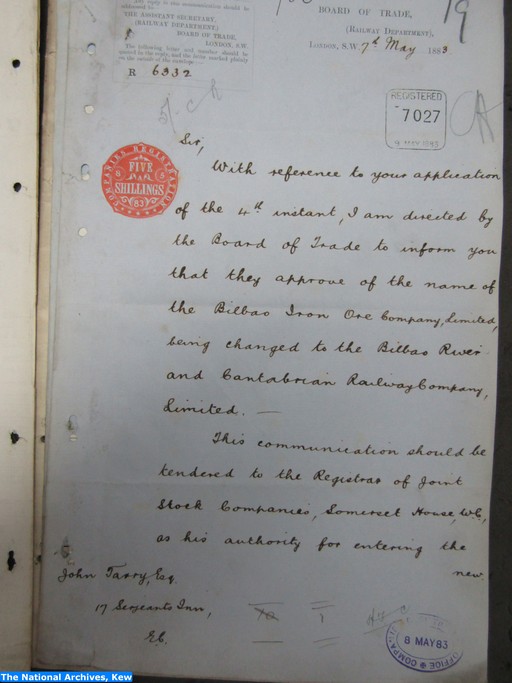 Any reply to this communication should be
addressed to
THE ASSISTANT SECRETARY,
(RAILWAY DEPARTMENT)
BOARD OF TRADE,
LONDON, S.W.
The following letter and number should be
quoted in the reply, and the reply marked plainly
on the outside of the envelope:—
R 6332
BOARD OF TRADE,
(RAILWAY DEPARTMENT),
LONDON, S.W. 7th May 1883
19
REGISTERED
7027
9 MAY 1883
COMPANIES REGISTRATION
FIVE
SHILLINGS
83
Sir,
With reference to your application
of the 4th instant, I am directed by
the Board of Trade to inform you
that they approve of the name of
the Bilbao Iron Ore Company, Limited,
being changed to the Bilbao River
and Cantabrian Railway Company,
Limited. —
This communication should be
tendered to the Registrar of Joint
Stock Companies, Somerset House, W.C,
as his authority for entering the
new
John Tarry, Esq.
17 Sergeants Inn,
E.C.
8 MAY 83
The National Archives, Kew